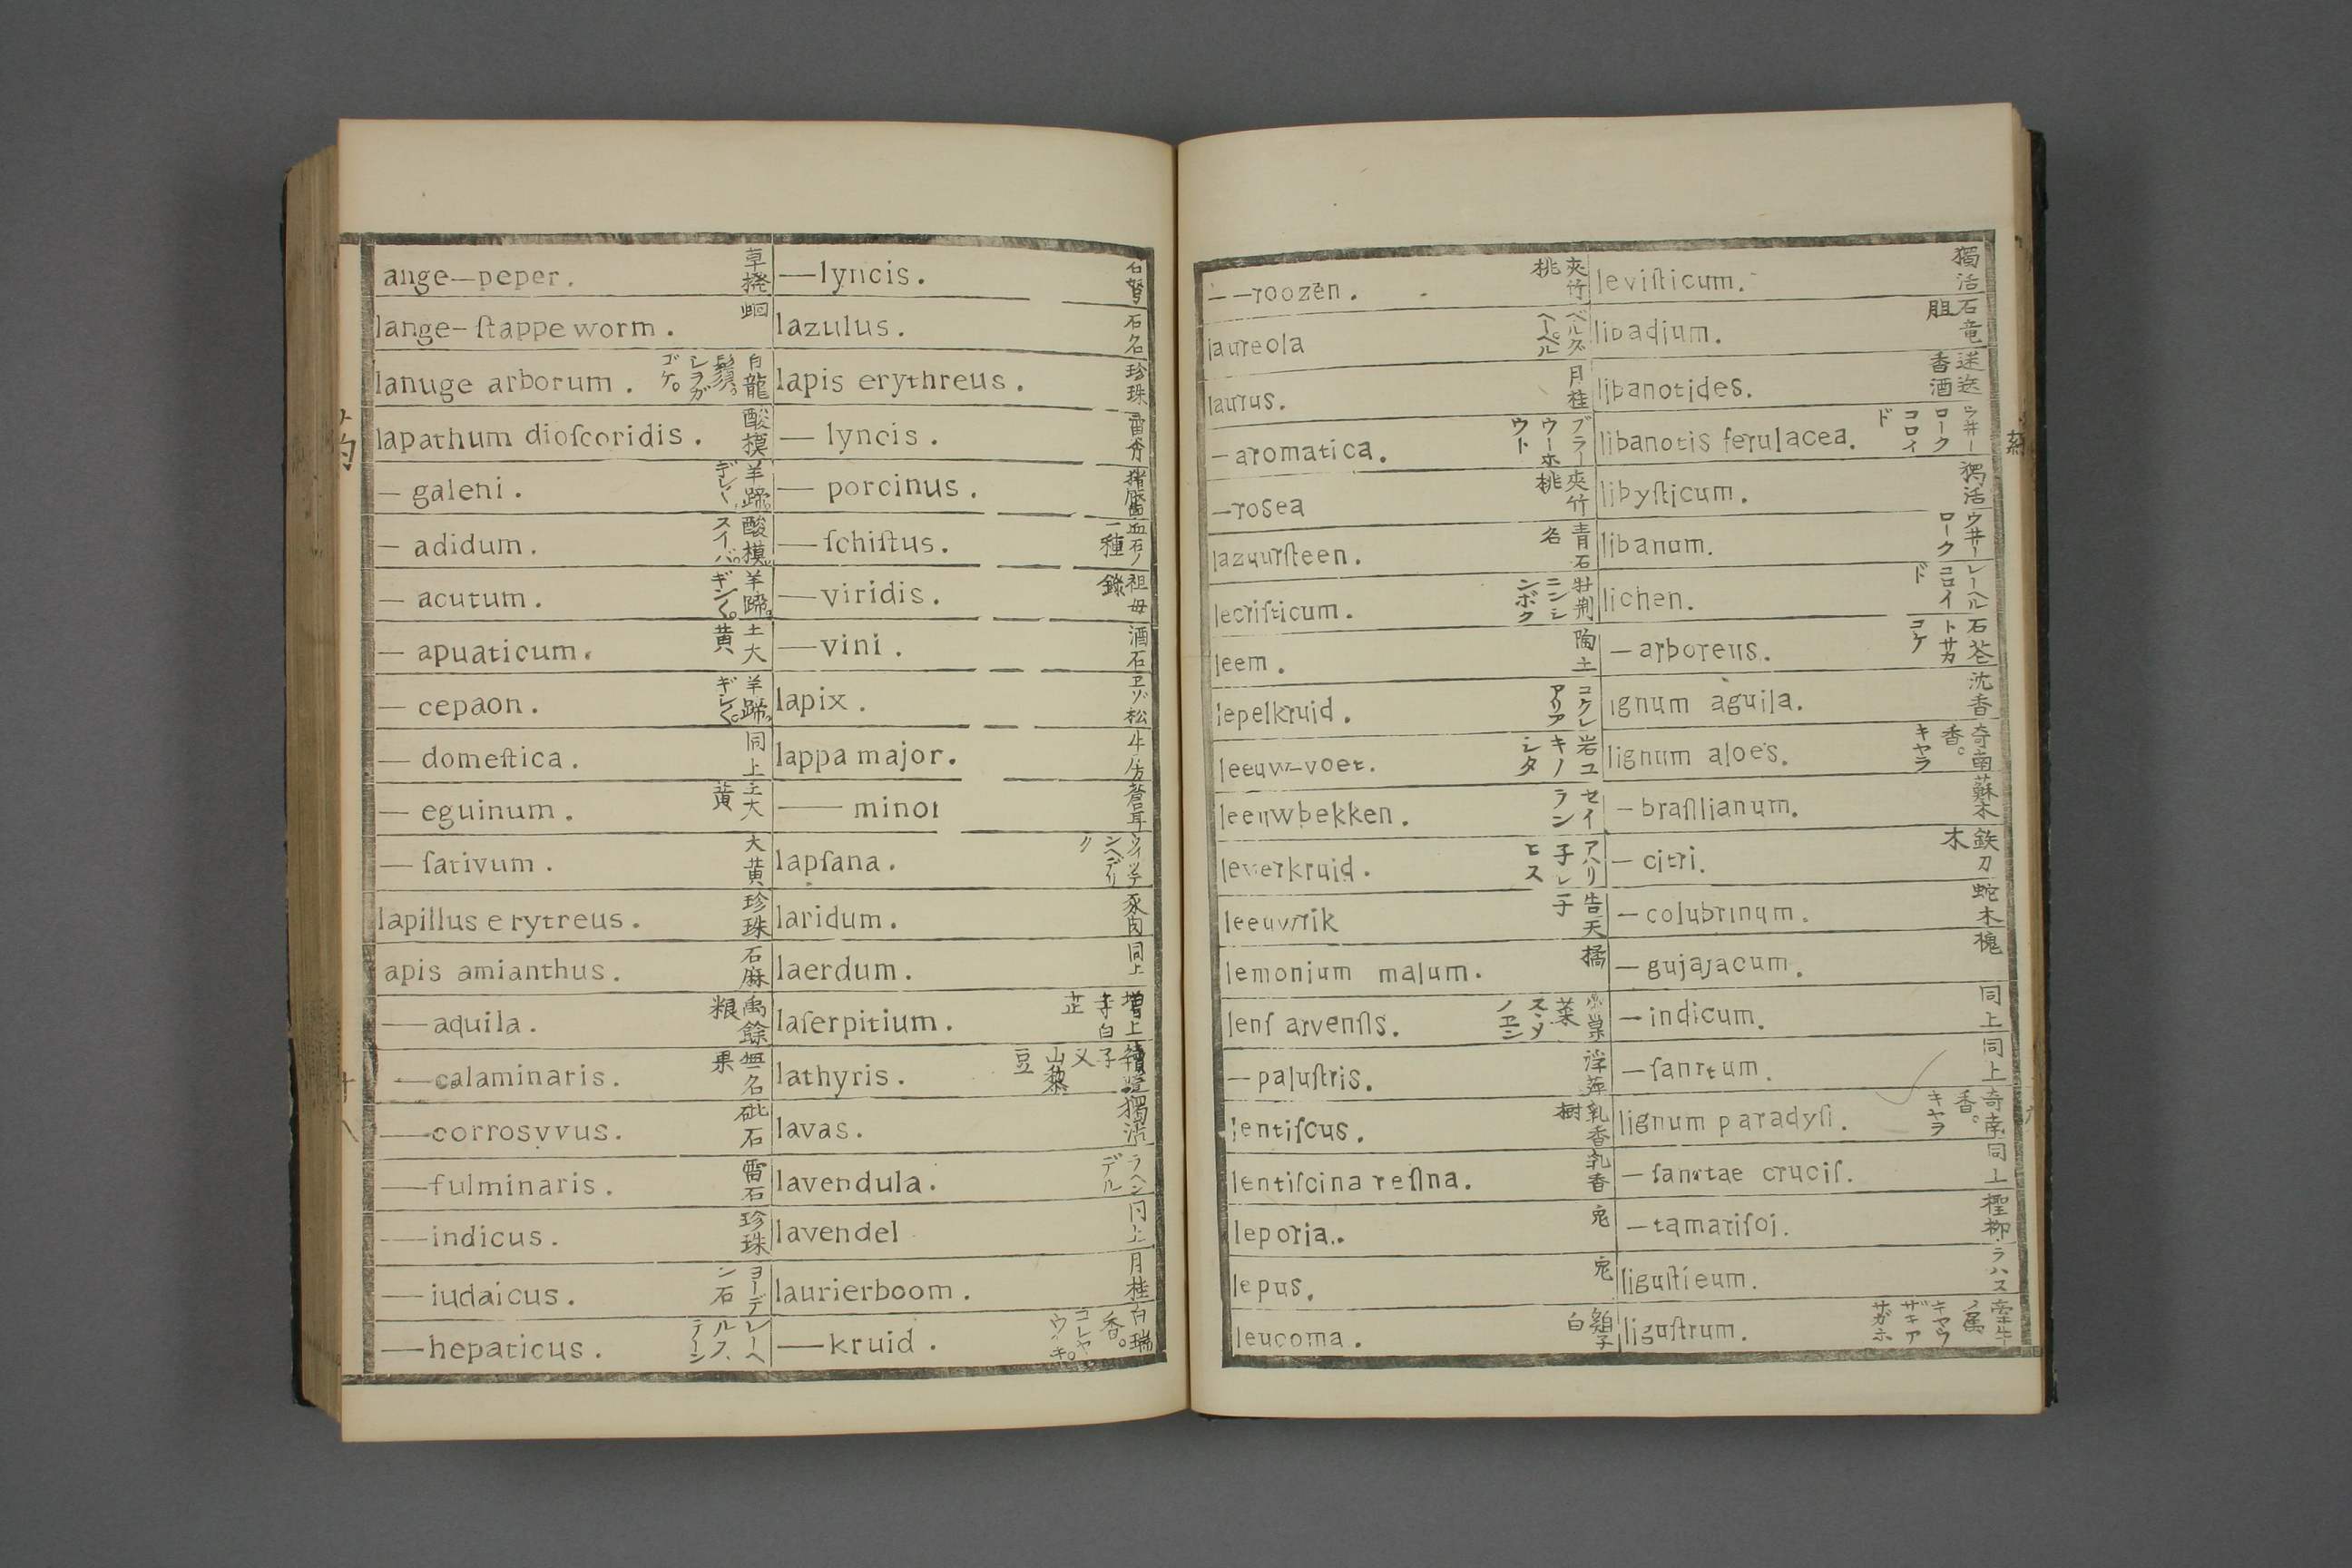 ange—peper. 草撥
lange-ſtappe worm. 蛔
lanuge arborum. 白龍鬚。シラガゴケ。
lapathum dioſcoridis. 酸模
— galeni. 羊蹄。
— adidum. 酸模。スイバ。
— acutum. 羊蹄。
— apuaticum. 土大黄
— cepaon. 羊蹄。
— domeſtica. 同上
— eguinum. 土大黄
— ſativum. 大黄
lapillus erytreus. 珍珠
apis amianthus. 石麻
— aquila. 禹餘粮
— calaminaris. 無名果
— corrosyvus. 砒石
— fulminaris. 雷石
— indicus. 珍珠
— iudaicus. ヨーデン石
— hepaticus. レーヘルステーン
— lyncis. 石弩
lazulus. 石名
lapis erythreus. 珍珠
— lyncis.
— porcinus.
— ſchiſtus. 血石ノ一種
— viridis. 祖母錄
— vini. 酒石
lapix. ヱゾ松
lappa major. 牛房
— minor 蒼耳
lapſana.
laridum. 豕肉
laerdum. 同上
laſerpitium. 増上寺白芷
lathyris. 續隨子又山藜豆
lavas. 獨活
lavendula. ラヘンデル
lavendel 同上
laurierboom. 月桂
— kruid. 白瑞香。
— —roozen. 夾竹桃
laureola ベルグヘーペル
laurus. 月桂
— aromatica. ブラーウーホウト
— rosea 夾竹桃
lazuurſteen. 青石名
lecriſticum. 牡荆ニンシンボク
leem. 陶土
lepelkruid. コクレアリア
leeuw-voet. 岩ユキノシタ
leeuwbekken. セイラン
leverkruid.
leeuwrik 告天子
lemonium malum. 橘
lenſ arvenſis.
— paluſtris. 浮萍
lentiſcus. 乳香樹
lentiſcina reſina. 乳香
leporia. 兎
lepus. 兎
leucoma. 鷄子白
leviſticum. 獨活
libadium. 石竜胆
libanotides. 迷迭香酒
libanotis ferulacea. ラ井ーロークコロイド
libyſticum. 獨活
libanum. ウ井ーローク
lichen. レーヘルコロイド
— arboreus. 石蕊トサカコケ
ignum aguila. 沈香
lignum aloes. 奇南香。キヤラ
— braſilianum. 蘇木
— citri. 鉄刀木
— colubrinum. 蛇木
— gujajacum. 槐
— indicum. 同上
— ſanrtum. 同上
lignum paradyſi. 奇南香。キヤラ
— ſanctae cruciſ. 同上
— tamariſoi. 檉柳
liguſtieum. ラハス
liguſtrum. 牽牛ノ属